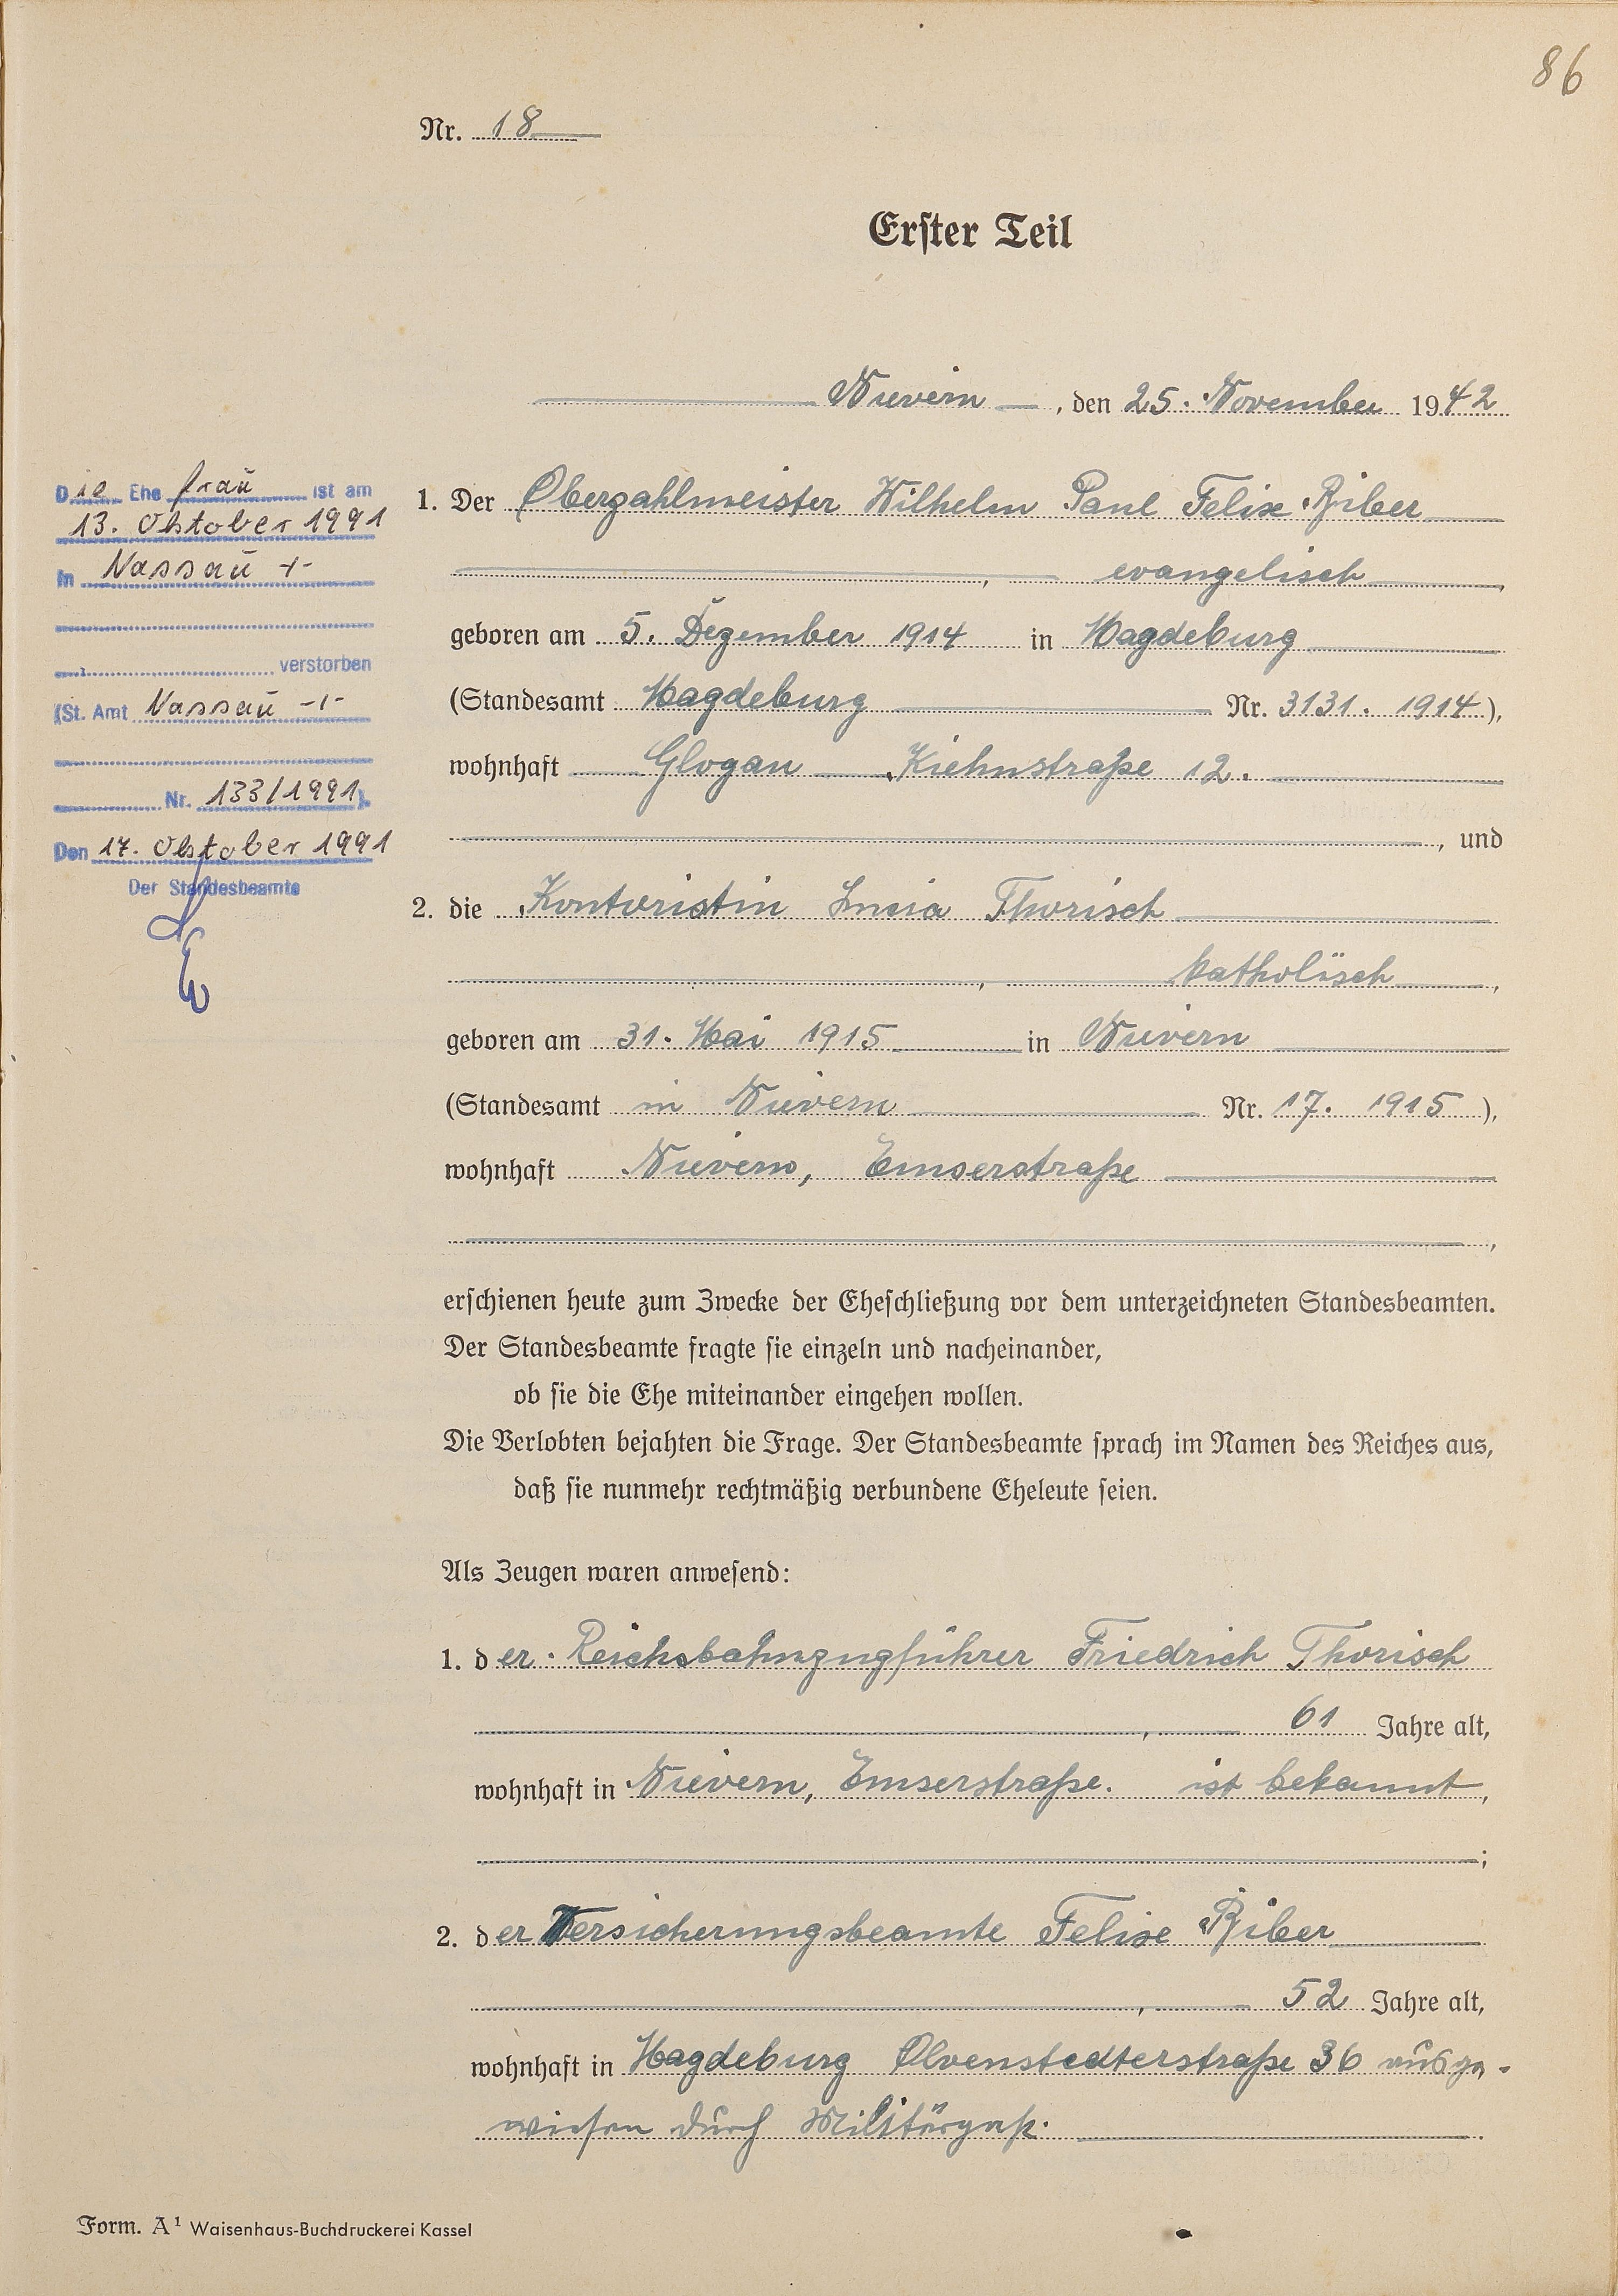 86
Nr. 18
Erster Teil
Nievern, den 25. November 1942
Die Ehefrau ist am
13. Oktober 1991
in Nassau -/-
verstorben
(St. Amt Nassau -/-
Nr. 133/1991).
Den 17. Oktober 1991
Der Standesbeamte
1. Der Oberzahlmeister Wilhelm Paul Felix Riber
, evangelisch,
geboren am 5. Dezember 1914 in Magdeburg
(Standesamt Magdeburg Nr. 3131. 1914),
wohnhaft Glogau Kiehnstraße 12.
, und
2. die Kontoristin Lucia Thorisch
, katholisch,
geboren am 31. Mai 1915 in Nievern
(Standesamt in Nievern Nr. 17. 1915),
wohnhaft Nievern, Emserstraße
,
erschienen heute zum Zwecke der Eheschließung vor dem unterzeichneten Standesbeamten.
Der Standesbeamte fragte sie einzeln und nacheinander,
ob sie die Ehe miteinander eingehen wollen.
Die Verlobten bejahten die Frage. Der Standesbeamte sprach im Namen des Reiches aus,
daß sie nunmehr rechtmäßig verbundene Eheleute seien.
Als Zeugen waren anwesend:
1. der Reichsbahnzugführer Friedrich Thorisch
, 61 Jahre alt,
wohnhaft in Nievern, Emserstraße. ist bekannt,
;
2. der Versicherungsbeamte Felix Riber
, 52 Jahre alt,
wohnhaft in Magdeburg Olvenstedterstraße 36 ausge-
wiesen durch Militärpaß.
Form. A¹ Waisenhaus-Buchdruckerei Kassel